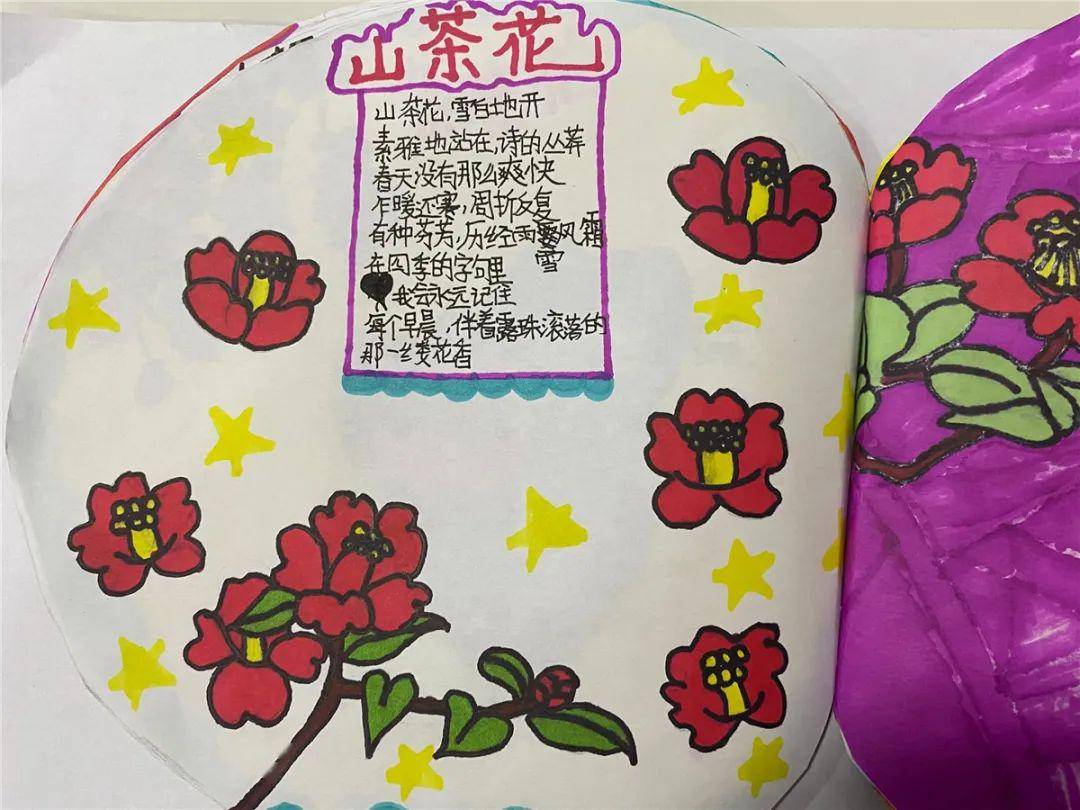 山茶花
山茶花,雪白地开
素雅地站在,诗的丛莽
春天没有那么爽快
乍暖还寒,周折反复
有种芬芳,历经雨雾风霜
雪
在四季的字句里
我会永远记住
每个早晨,伴着露珠滚落的
那一缕花香